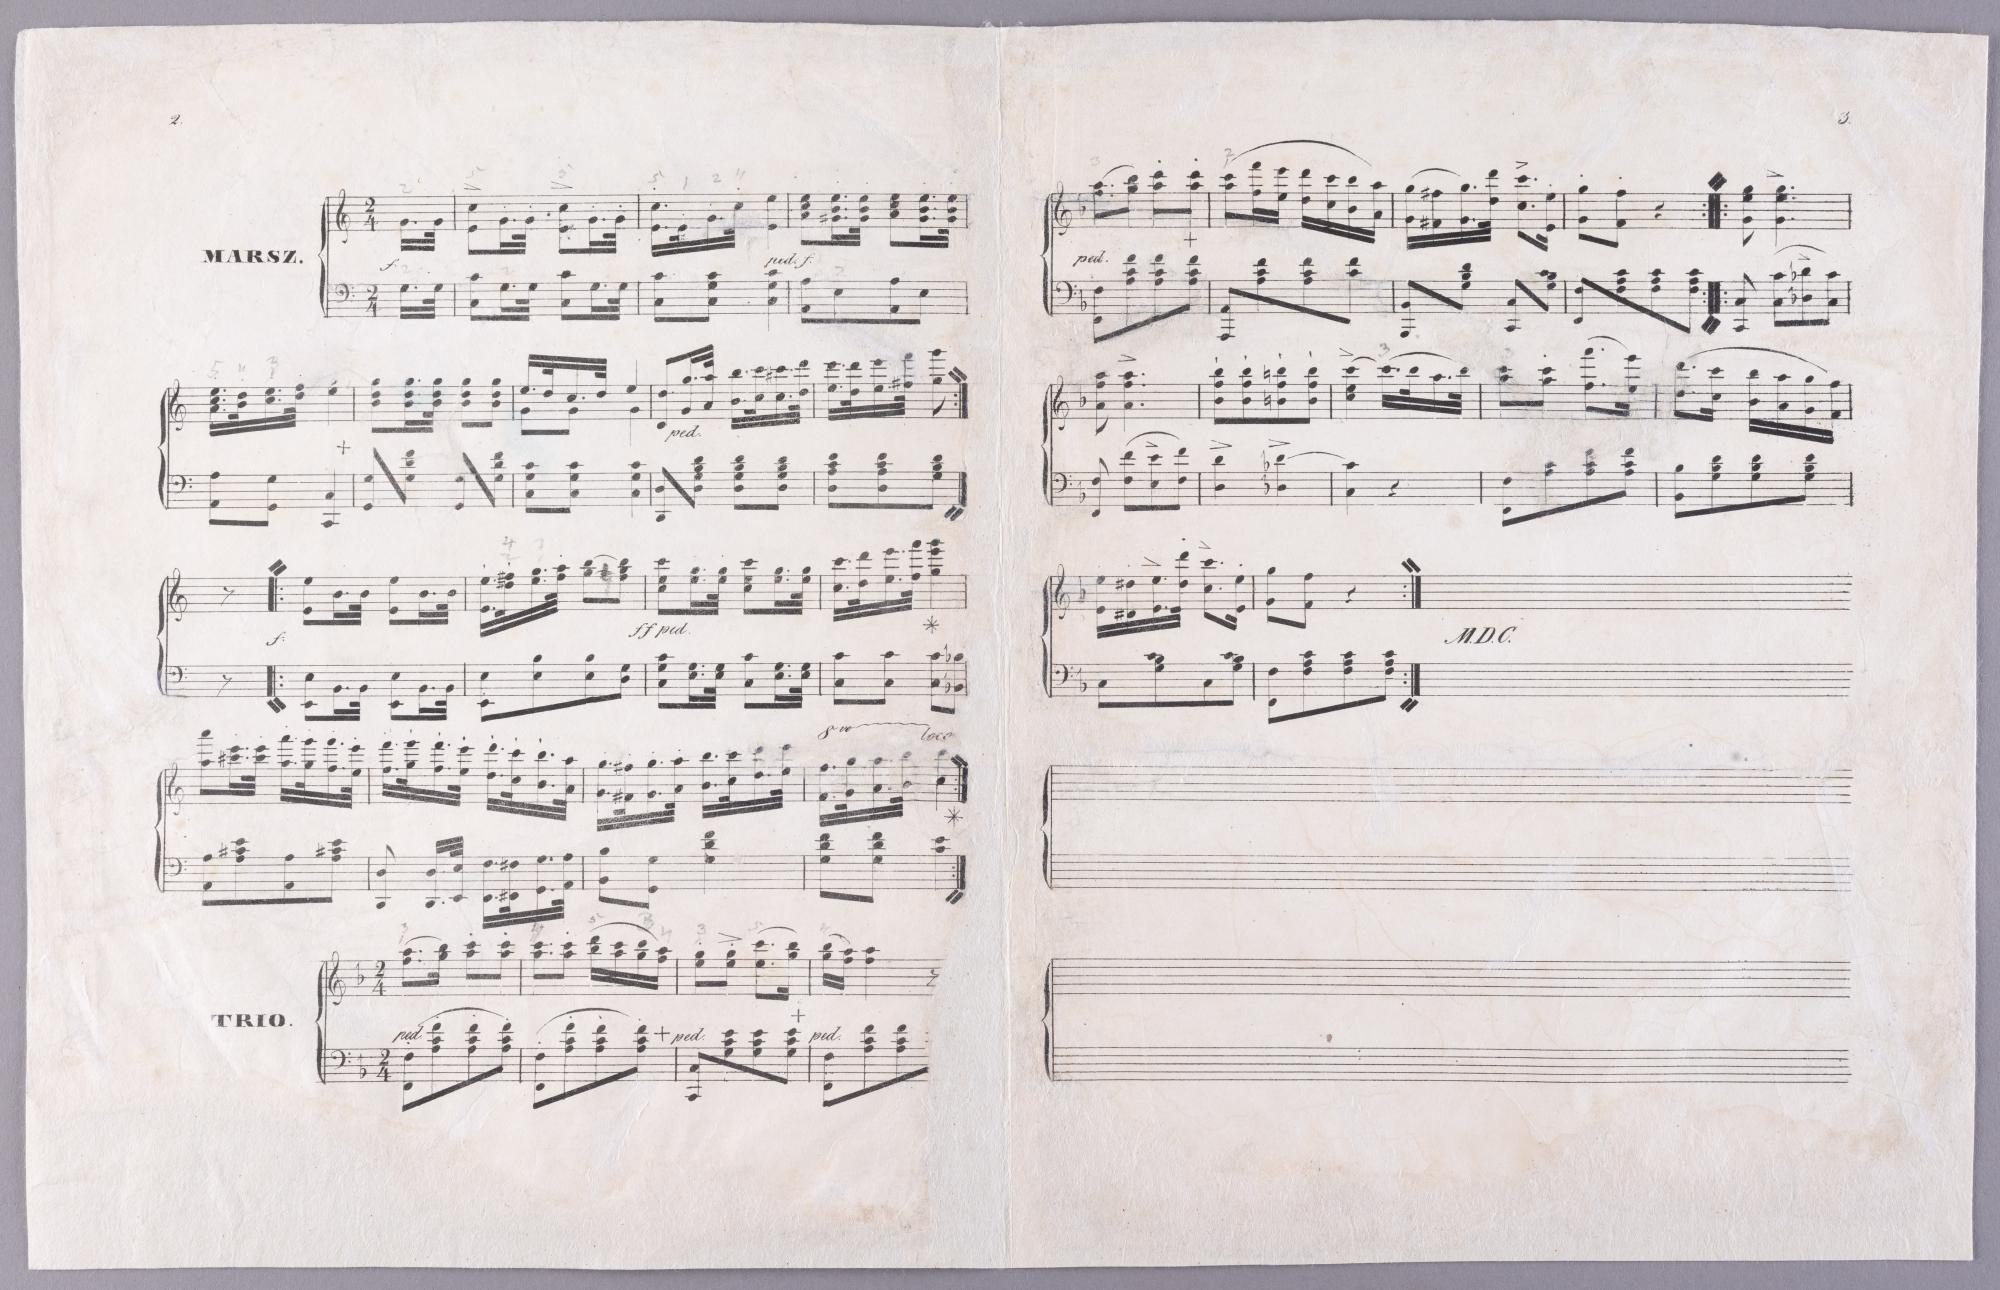 2.
MARSZ.
f.
ped. f.
ped.
f.
ff ped.
8va
loco
TRIO.
ped.
ped.
ped.
3.
ped.
M.D.C.